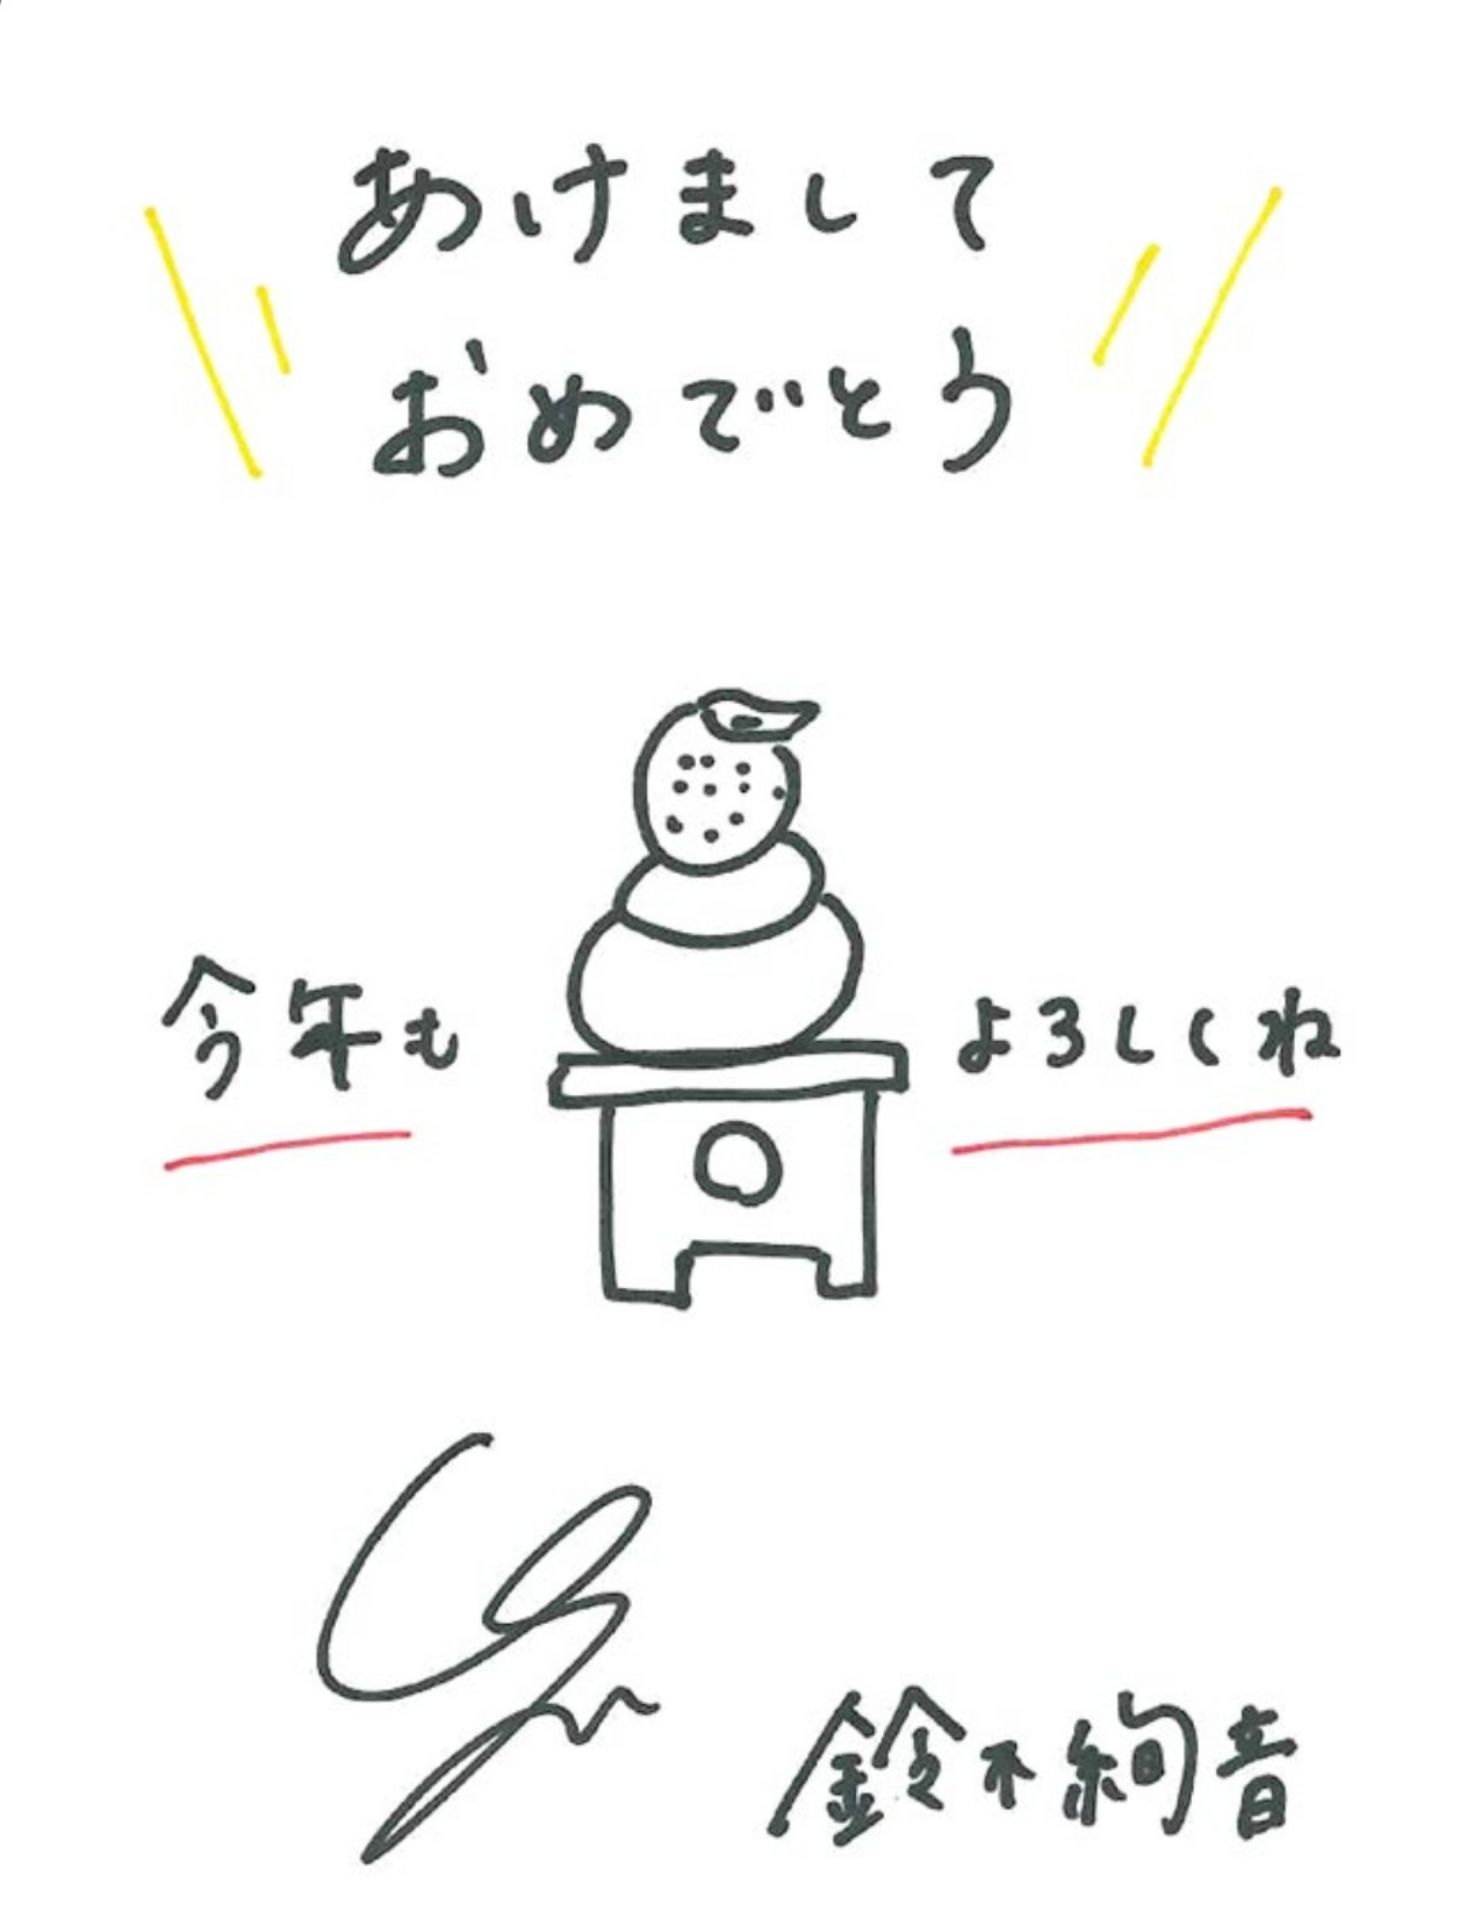 あけまして
おめでとう
今年も よろしくね
鈴木絢音